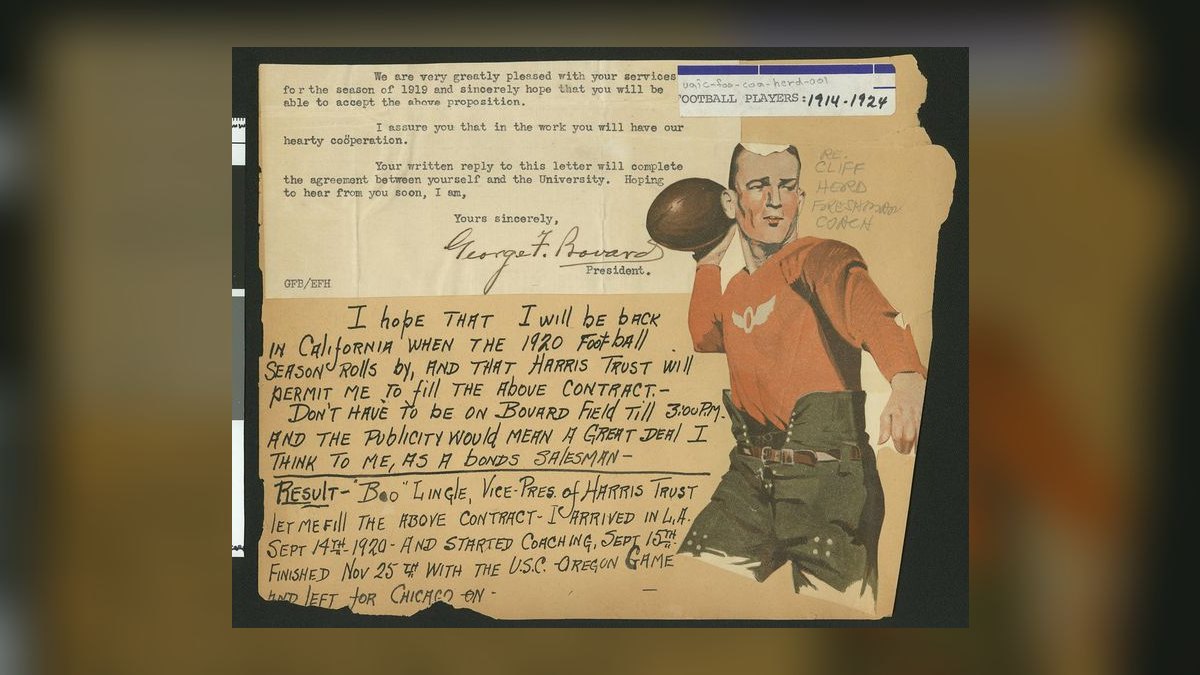 We are very greatly pleased with your services
for the season of 1919 and sincerely hope that you will be
able to accept the above proposition.
I assure you that in the work you will have our
hearty coöperation.
Your written reply to this letter will complete
the agreement between yourself and the University. Hoping
to hear from you soon, I am,
Yours sincerely,
George F. Bovard
President.
GFB/EFH
uaic-foo-coa-herd-001
FOOTBALL PLAYERS: 1914-1924
RE.
CLIFF
HERD
FRESHMAN
COACH
I hope THAT I will be back
IN California WHEN THE 1920 Football
SEASON rolls by, AND THAT HARRIS TRUST will
PERMIT ME TO fill THE ABOVE CONTRACT.-
DON'T HAVE TO be ON BOVARD FIELD Till 3:00 P.M.
AND THE PUBLICITY WOULD MEAN A GREAT DEAL I
THINK TO ME, AS A bONDS SALESMAN-
RESULT- "Boo" LINGLE, VICE-PRES. of HARRIS TRUST
LET ME fill THE ABOVE CONTRACT- I ARRIVED IN L.A.
SEPT 14TH 1920- AND STARTED COACHING, SEPT 15TH
FINISHED NOV 25TH WITH THE U.S.C.-OREGON GAME
AND LEFT FOR CHICAGO ON -